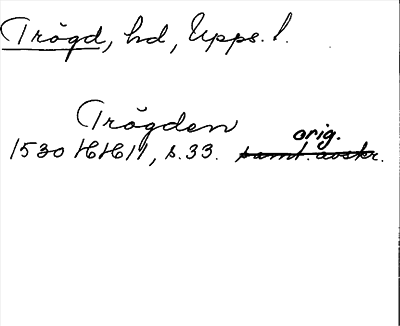 Trögd, hd, Upps. l.
Trögden
orig.
1530 HH 11, s. 33. samt. avskr.